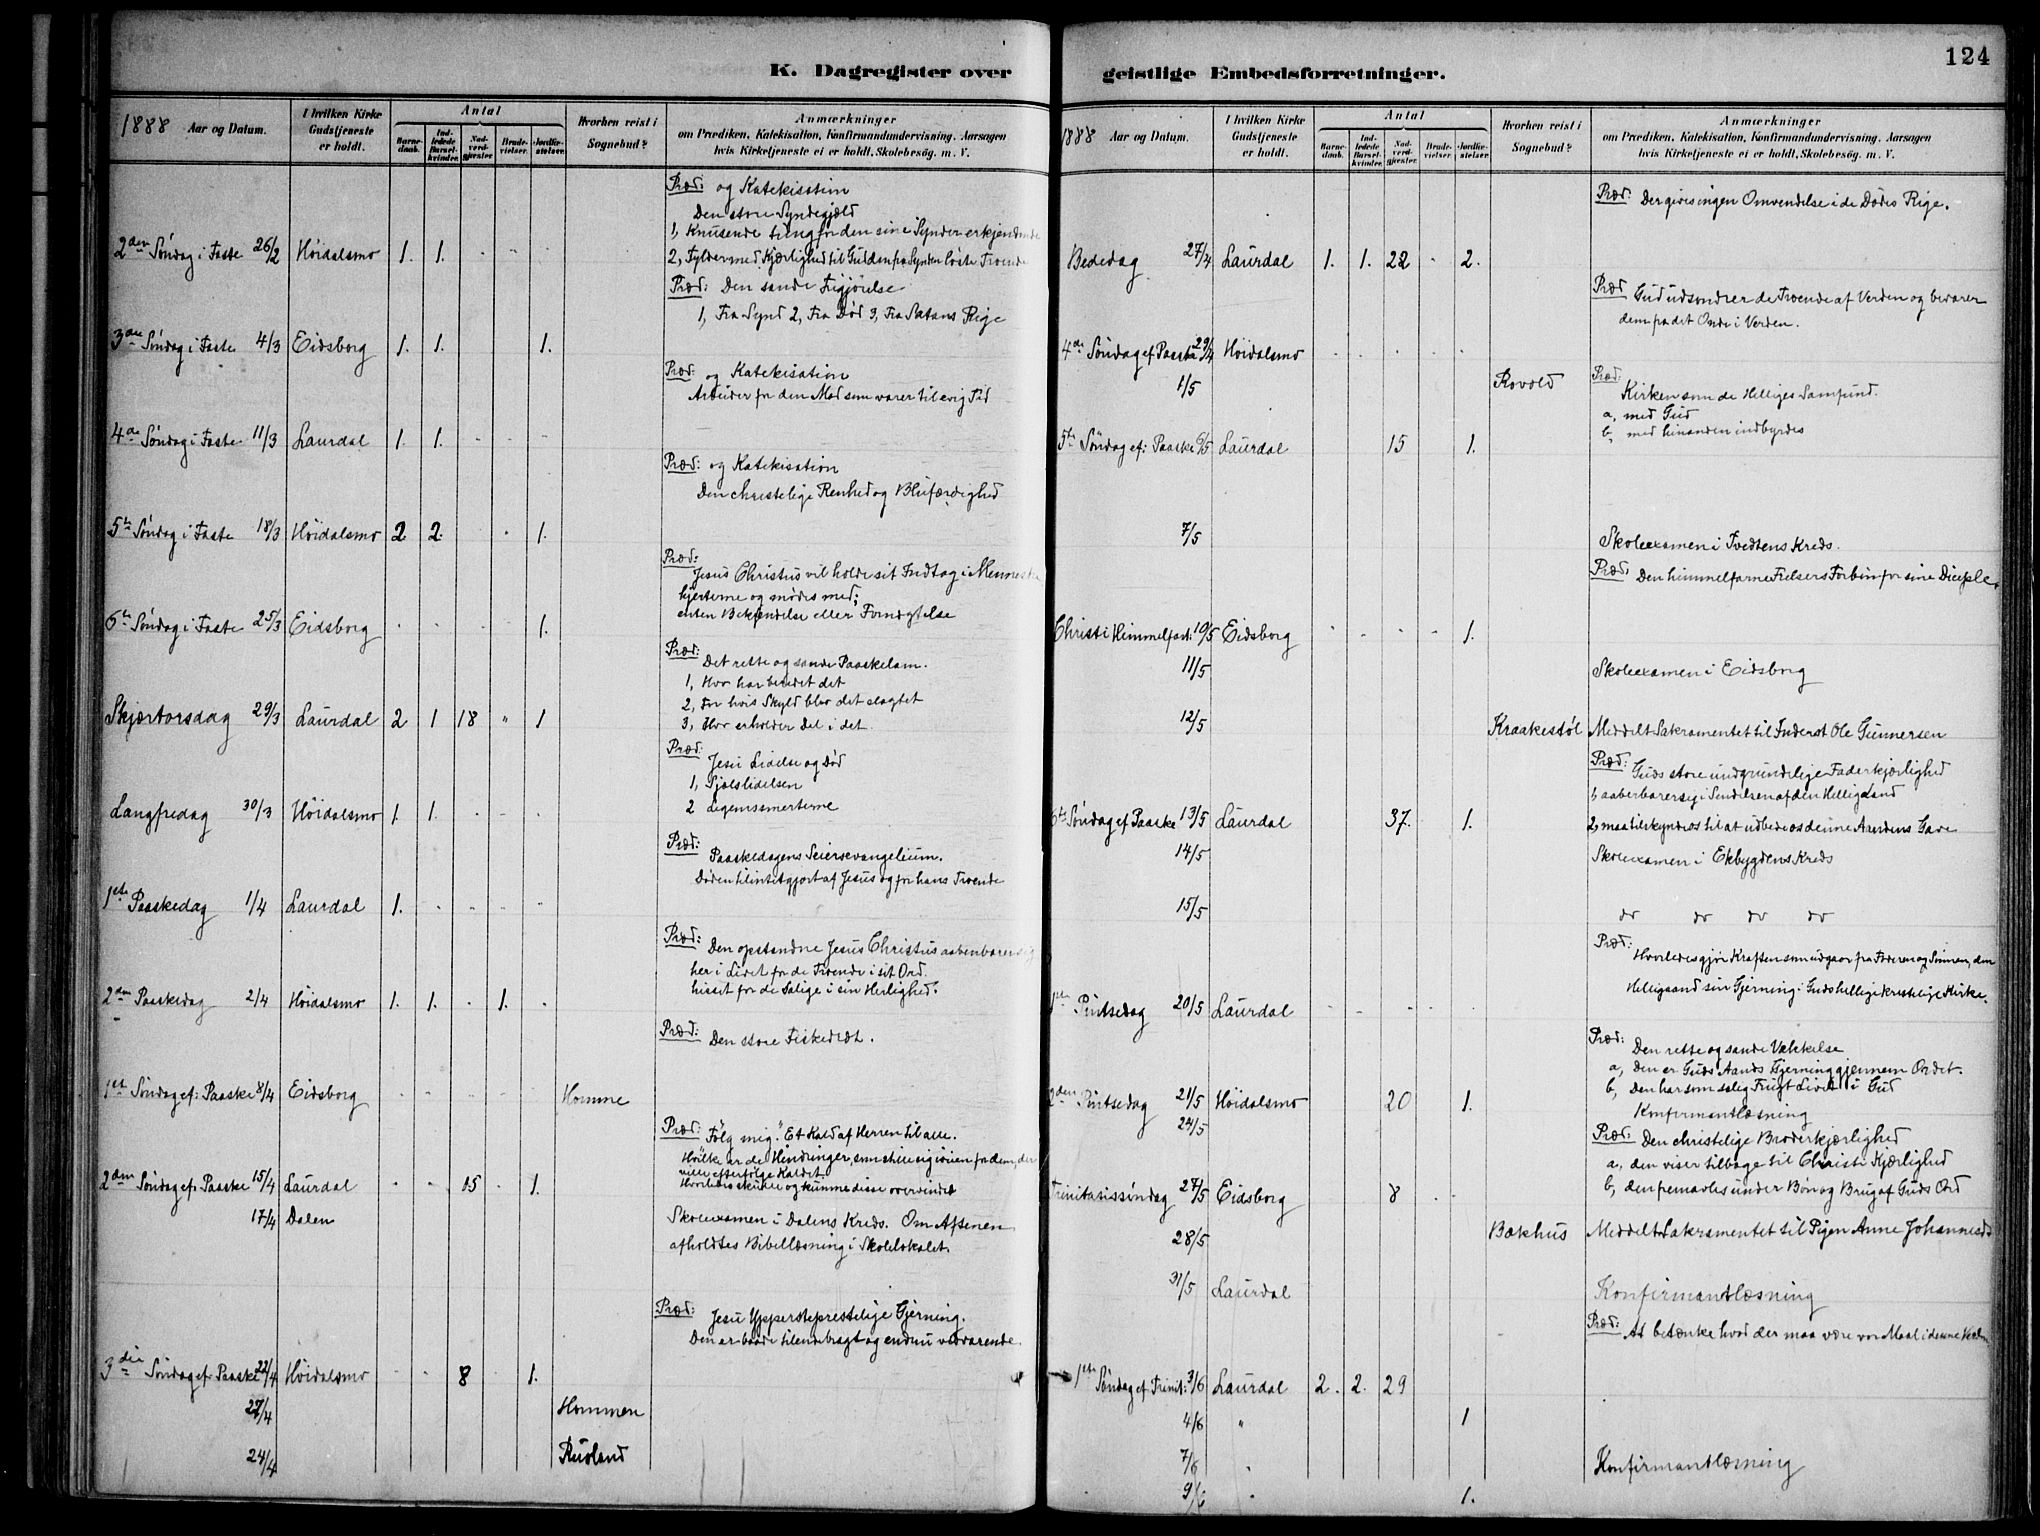 K. Dagregister over
1888 Aar og Datum.
I hvilken Kirke Gudstjeneste er holdt.
Antal
Barnedaab.
Indledede Barselkvinder.
Nadverdgjester.
Brudevielser.
Jordfæstelser.
Hvorhen reist i Sognebud?
Anmærkninger
om Prædiken, Katekisation, Konfirmandundervisning. Aarsagen
hvis Kirketjeneste ei er holdt, Skolebesøg. m. V.
Præd: og Katekisation
Den store Syndegjæld
1, Knusende tung for den sine Synder erkjendende
2den Søndag i Faste 26/2 Høidalsmo 1. 1. 2, Fylder med Kjærlighed til Gud den fra Synden løste Troende
Præd: Den sande Frigjørelse
1, Fra Synd 2, Fra Død 3, Fra Satans Rige
3die Søndag i Faste 4/3 Eidsborg 1. 1. 1.
Præd: og Katekisation
Arbeider for den Mad som varer til evig Tid
4de Søndag i Faste 11/3 Laurdal 1. 1.
Præd: og Katekisation
Den christelige Renhed og Blufærdighed
5te Søndag i Faste 18/3 Høidalsmo 2 2. 1.
Præd:
Jesus Christus vil holde sit Indtog i Menneske
hjerterne og mødes med;
enten Bekjendelse eller Fornegtelse
6te Søndag i Faste 25/3 Eidsborg 1.
Præd:
Det rette og sande Paaskelam.
1, Hvo har beredet det
2, For hvis Skyld blev det slagtet
Skjærtorsdag 29/3 Laurdal 2 1 18 " 1 3, Hvo erholder Del i det.
Præd:
Jesu Lidelse og Død
1, Sjælslidelsen
2 Legemssmerterne
Langfredag 30/3 Høidalsmo 1. 1.
Præd:
Paaskedagens Seiersevangelium.
Døden tilintetgjort af Jesus og for hans Troende
1ste Paaskedag 1/4 Laurdal 1.
Præd:
Den opstandne Jesus Christus aabenbarer sig
her i Livet for de Troende i sit Ord.
hisset for de Salige i sin Herlighed.
2den Paaskedag 2/4 Høidalsmo 1. 1. 1.
Præd: Den store Fiskedræt.
1ste Søndag ef: Paaske 8/4 Eidsborg Homme
Præd: "Følg mig." Et Kald af Herren til alle.
Hvilke er de Hindringer, som stille sig i veien for dem, der
ville efterfølge Kaldet
Hvorledes skulle og kunne disse overvindes
2den Søndag ef. Paaske 15/4 Laurdal 15 1.
17/4 Dalen Skoleexamen i Dalens Kreds. Om Aftenen
afholdtes Bibellæsning i Skolelokalet.
Præd:
Jesu Ypperstepræstelige Gjerning.
Den er baade tilendebragt og endnu vedvarende.
3die Søndag ef. Paaske 22/4 Høidalsmo 8 1.
27/4 Hommen
24/4 Rusland
geistlige Embedsforretninger.
124
1888 Aar og Datum.
I hvilken Kirke Gudstjeneste er holdt.
Antal
Barnedaab.
Indledede Barselkvinder.
Nadverdgjester.
Brudevielser.
Jordfæstelser.
Hvorhen reist i Sognebud?
Anmærkninger
om Prædiken, Katekisation, Konfirmandundervisning. Aarsagen
hvis Kirketjeneste ei er holdt, Skolebesøg. m. V.
Præd: Der gives ingen Omvendelse i de Dødes Rige.
Bededag 27/4 Laurdal 1. 1. 22 2.
Præd Gud udsondrer de Troende af Verden og bevarer
dem fra det Onde i Verden.
4de Søndag ef. Paaske 29/4 Høidalsmo
1/5 Rovold
Præd:
Kirken som de Helliges Samfund.
a, med Gud
b, med hinanden indbyrdes
5te Søndag ef: Paaske 6/5 Laurdal 15 1.
7/5 Skoleexamen i Tvedtens Kreds.
Præd: Den himmelfarne Frelsers Forbøn for sine Disciple.
Christi Himmelfart: 10/5 Eidsborg 1.
11/5 Skoleexamen i Eidsborg
12/5 Kraakestøl Meddelt Sakramentet til Inderst Ole Gunnersen
Præd:
Guds store uudgrundelige Faderkjærlighed
1, aabenbarer sig i Sendelsen af den Helligaand
6te Søndag ef Paaske 13/5 Laurdal 37. 1. 2, maa tilskynde os til at udbede os denne Aandens Gave
14/5 Skoleexamen i Ekbygdens Kreds
15/5 do do do do
Præd:
Hvorledes gjør Kraften som udgaar fra Faderen og Sønnen, den
Helligaand sin Gjerning i Guds hellige kristelige Kirke.
1ste Pintsedag 20/5 Laurdal
Præd:
Den rette og sande Vækkelse
a, Den er Guds Aands Gjerning gjennem Ordet.
b, Den har som salig Frugt Livet i Gud
2den Pintsedag 21/5 Høidalsmo 20 1.
24/5 Konfirmantlæsning
Præd: Den christelige Broderkjærlighed
a, den viser tilbage til Christi Kjærlighed
b, den fremavles under Bøn og Brug af Guds Ord
Trinitatissøndag 27/5 Eidsborg 8
28/5 Bakhus Meddelt Sakramentet til Pigen Anne Johannesd
31/5 Laurdal Konfirmantlæsning
Præd: At betænke hvad der maa være vor Maal i denne Verden
1ste Søndag ef Trinit: 3/6 Laurdal 2. 2. 29
4/6 " 1
7/6 Konfirmantlæsning
9/6 1.